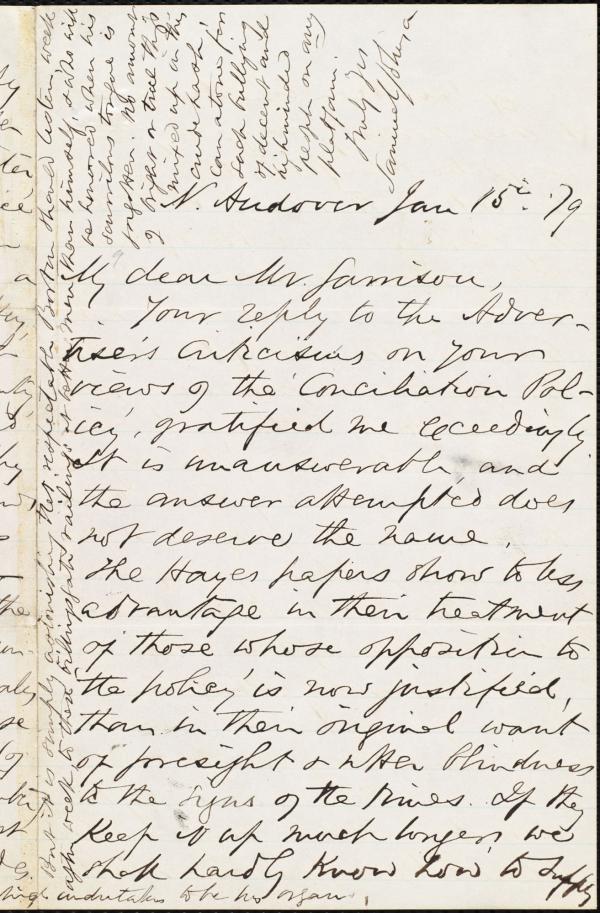 N. Andover Jan 15th. '79
My dear Mr. Garrison,
Your reply to the Adver-
tiser's Criticisms on your
views of the 'Conciliation Pol-
icy', gratified me exceedingly
It is unanswerable, and
the answer attempted does
not deserve the name.
The Hayes papers show to less
advantage in their treatment
of those whose opposition to
'the policy' is now justified,
than in their original want
of foresight & utter blindness
to the signs of the times. If they
keep it up much longer, we
shall hardly know how to supply
But it is simply astonishing that respectable Boston should listen, week
after week to those billingsgate railings at better men than himself, & who will
be honored when his
scurrilous tongue is
forgotten. No amount
of right or true things
mixed up in this
crude hash
can atone for
such bullying
of decent and
rightminded
people on any
platform.
Truly yrs
Samuel Johnson
undertakes to be his organ.